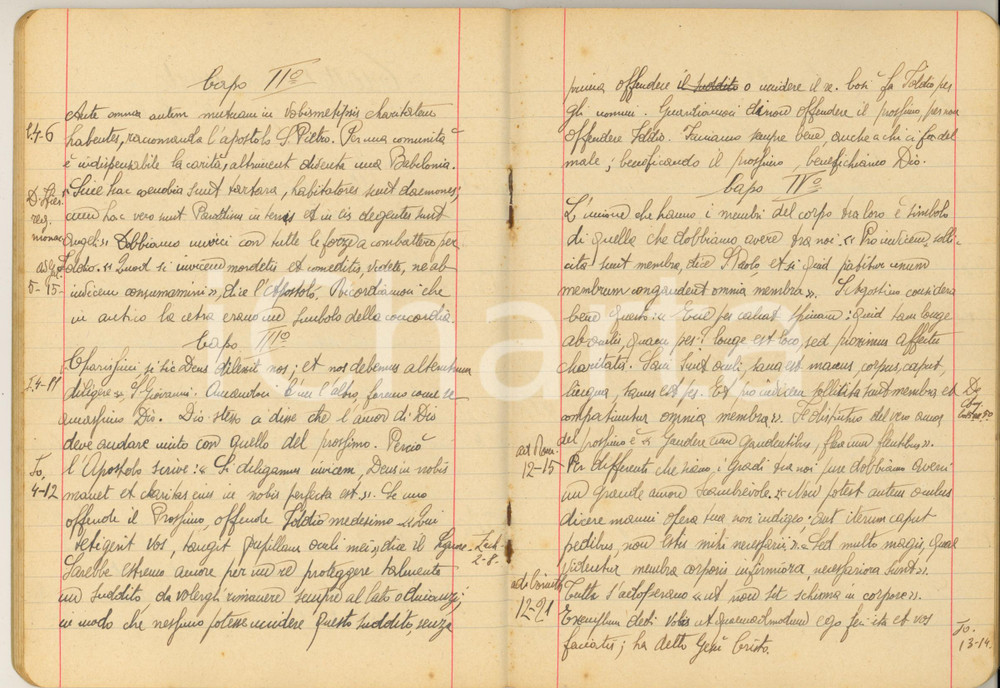 Capo IIo
Ante omnia autem mutuam in vobismetipsis charitatem
I.4-6
habentes, raccomanda l'apostolo S. Pietro. Per una comunità
è indispensabile la carità, altrimenti diventa una Babilonia.
D. Hier.
reg.
monac.
"Sine hac cenobia sunt tartara, habitatores sunt daemones;
cum hac vero sunt Paradisus in terris et in eis degentes sunt
angeli" Dobbiamo unirci con tutte le forze a combattere per
ad Gal.
5-15-
Iddio. "Quod si invicem mordetis et comeditis, videte, ne ab
invicem consumamini", dice l'Apostolo. Ricordiamoci che
in antico la cetra era un simbolo della concordia.
Capo IIIo
I.4-11
Charissimi, si sic Deus dilexit nos; et nos debemus alterutrum
diligere". S. Giovanni. Amandoci l'un l'altro, faremo come se
amassimo Dio. Dio stesso a disse che l'amor di Dio
deve andare unito con quello del prossimo. Perciò
Jo.
4-12
l'Apostolo scrive: "Si diligamus invicem, Deus in nobis
manet et charitas eius in nobis perfecta est." Se uno
offende il Prossimo, offende Iddio medesimo. "Qui
tetigerit vos, tangit pupillam oculi mei", dice il Signore.
Zach.
2-8.
Sarebbe estremo amore per un re proteggere talmente
un suddito, da volergli rimanere sempre al lato o
in modo che nessuno potesse uccidere questo suddito, senza
prima offendere il suddito o uccidere il re. Così fa Iddio per
gli uomini. Guardiamoci di non offendere il prossimo, per non
offendere Iddio. Facciamo sempre bene anche a chi ci fa del
male; beneficando il prossimo benefichiamo Dio.
Capo IVo
L'unione che hanno i membri del corpo tra loro è simbolo
di quella che dobbiamo avere tra noi. "Pro invicem solli-
cita sunt membra, dice S. Paolo, et si quid patitur unum
membrum congaudent omnia membra". S. Agostino considera
bene questo: "Ecce pes calcat spinam: quid tam longe
ab oculis, quam pes? longe est loco, sed proximus affectu
charitatis. Sani sunt oculi, sana est manus, corpus, caput,
lingua, sanus est pes. Et pro invicem sollicita sunt membra et
D.
compatiuntur omnia membra". Il distintivo del vero amor
del prossimo è "Gaudere cum gaudentibus, flere cum flentibus".
ad Rom.
12-15
Per differenti che siano i gradi tra noi pure dobbiamo averci
un grande amore scambievole. "Non potest autem oculus
dicere manui opera tua non indigeo: aut iterum caput
pedibus, non estis mihi necessarii". "Sed multo magis, quae
videntur membra corporis infirmiora, necessariora sunt".
12-21
Tutti s'adoperano "ut non sit schisma in corpore".
Exemplum dedi vobis ut quemadmodum ego feci ita et vos
Jo.
13-14.
faciatis; ha detto Gesù Cristo.